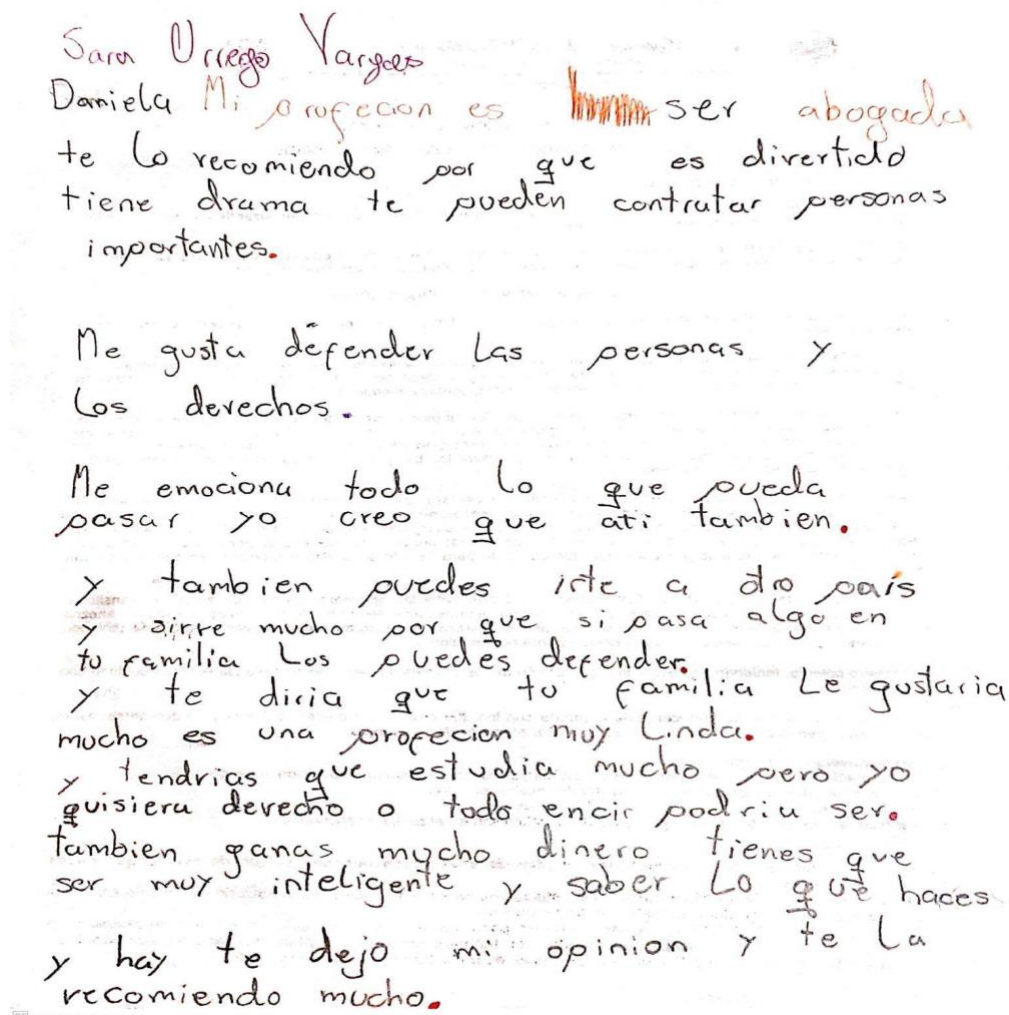 Sara Urrego Vargas
Daniela Mi profecion es ser abogada
te lo recomiendo por que es divertido
tiene drama te pueden contratar personas
importantes.
Me gusta defender las personas y
los derechos.
Me emociona todo lo que pueda
pasar yo creo que ati tambien.
y tambien puedes irte a otro país
y sirve mucho por que si pasa algo en
tu familia los puedes defender.
y te diria que tu familia le gustaria
mucho es una profecion muy linda.
y tendrias que estudia mucho pero yo
quisiera derecho o todo encir podria ser.
tambien ganas mucho dinero tienes que
ser muy inteligente y saber lo que haces
y hay te dejo mi opinion y te la
recomiendo mucho.